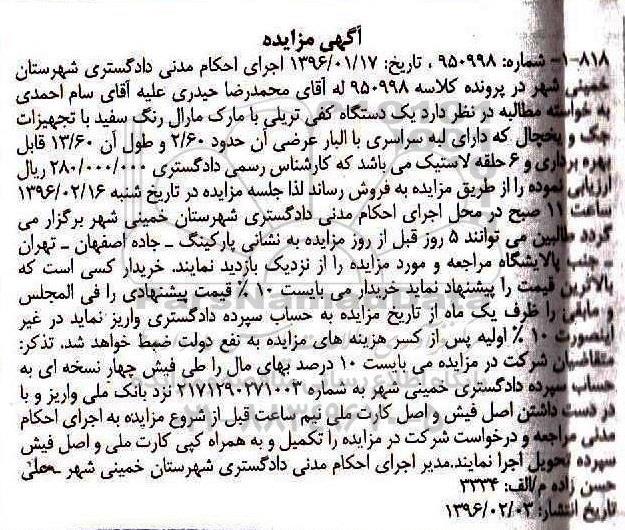 آگهی مزایده
۸۱۸-۱- شماره: ۹۵۰۹۹۸ ، تاریخ: ۱۳۹۶/۰۱/۱۷ اجرای احکام مدنی دادگستری شهرستان
خمینی شهر در پرونده کلاسه ۹۵۰۹۹۸ له آقای محمدرضا حیدری علیه آقای سام احمدی
به خواسته مطالبه در نظر دارد یک دستگاه کفی تریلی با مارک مارال رنگ سفید با تجهیزات
جک و یخچال که دارای لبه سراسری با البار عرضی آن حدود ۲/۶۰ و طول آن ۱۳/۶۰ قابل
بهره برداری و ۶ حلقه لاستیک می باشد که کارشناس رسمی دادگستری ۲۸۰/۰۰۰/۰۰۰ ریال
ارزیابی نموده را از طریق مزایده به فروش رساند لذا جلسه مزایده در تاریخ شنبه ۱۳۹۶/۰۲/۱۶
ساعت ۱۱ صبح در محل اجرای احکام مدنی دادگستری شهرستان خمینی شهر برگزار می
گردد طالبین می توانند ۵ روز قبل از روز مزایده به نشانی پارکینگ ـ جاده اصفهان ـ تهران
ـ جنب پالایشگاه مراجعه و مورد مزایده را از نزدیک بازدید نمایند. خریدار کسی است که
بالاترین قیمت را پیشنهاد نماید خریدار می بایست ۱۰ ٪ قیمت پیشنهادی را فی المجلس
و مابقی را ظرف یک ماه از تاریخ مزایده به حساب سپرده دادگستری واریز نماید در غیر
اینصورت ۱۰ ٪ اولیه پس از کسر هزینه های مزایده به نفع دولت ضبط خواهد شد. تذکر:
متقاضیان شرکت در مزایده می بایست ۱۰ درصد بهای مال را طی فیش چهار نسخه ای به
حساب سپرده دادگستری خمینی شهر به شماره ۲۱۷۱۲۹۰۲۷۱۰۰۳ نزد بانک ملی واریز و با
در دست داشتن اصل فیش و اصل کارت ملی نیم ساعت قبل از شروع مزایده به اجرای احکام
مدنی مراجعه و درخواست شرکت در مزایده را تکمیل و به همراه کپی کارت ملی و اصل فیش
سپرده تحویل اجرا نمایند.مدیر اجرای احکام مدنی دادگستری شهرستان خمینی شهر ـ علی
حسن زاده م/الف: ۳۳۳۴
تاریخ انتشار: ۱۳۹۶/۰۲/۰۳